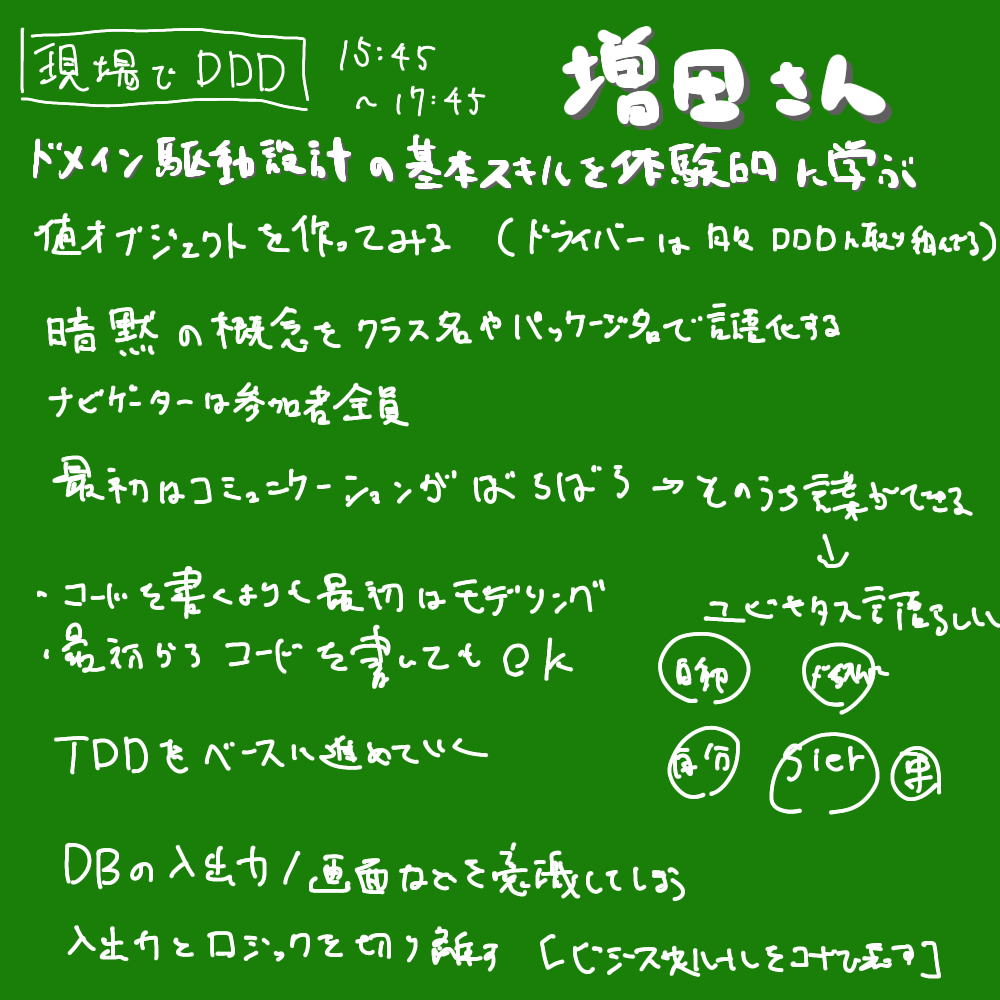 現場でDDD
15:45
~ 17:45
増田さん
ドメイン駆動設計の基本スキルを体験的に学ぶ
値オブジェクトを作ってみる (ドライバーは 日々 DDDに取り組んでる)
暗黙の概念をクラス名やパッケージ名で言語化する
ナビゲーターは参加者全員
最初はコミュニケーションがばらばら → そのうち言葉ができる
↓
ユビキタス言語らしい
・コードを書くよりも最初はモデリング
・最初からコードを書いてもOK
自分
SIer
車
TDDをベースに進めていく
DBの入出力/画面などを意識してしまう
入出力とロジックを切り離す [ビジネスルールをコードで表す]